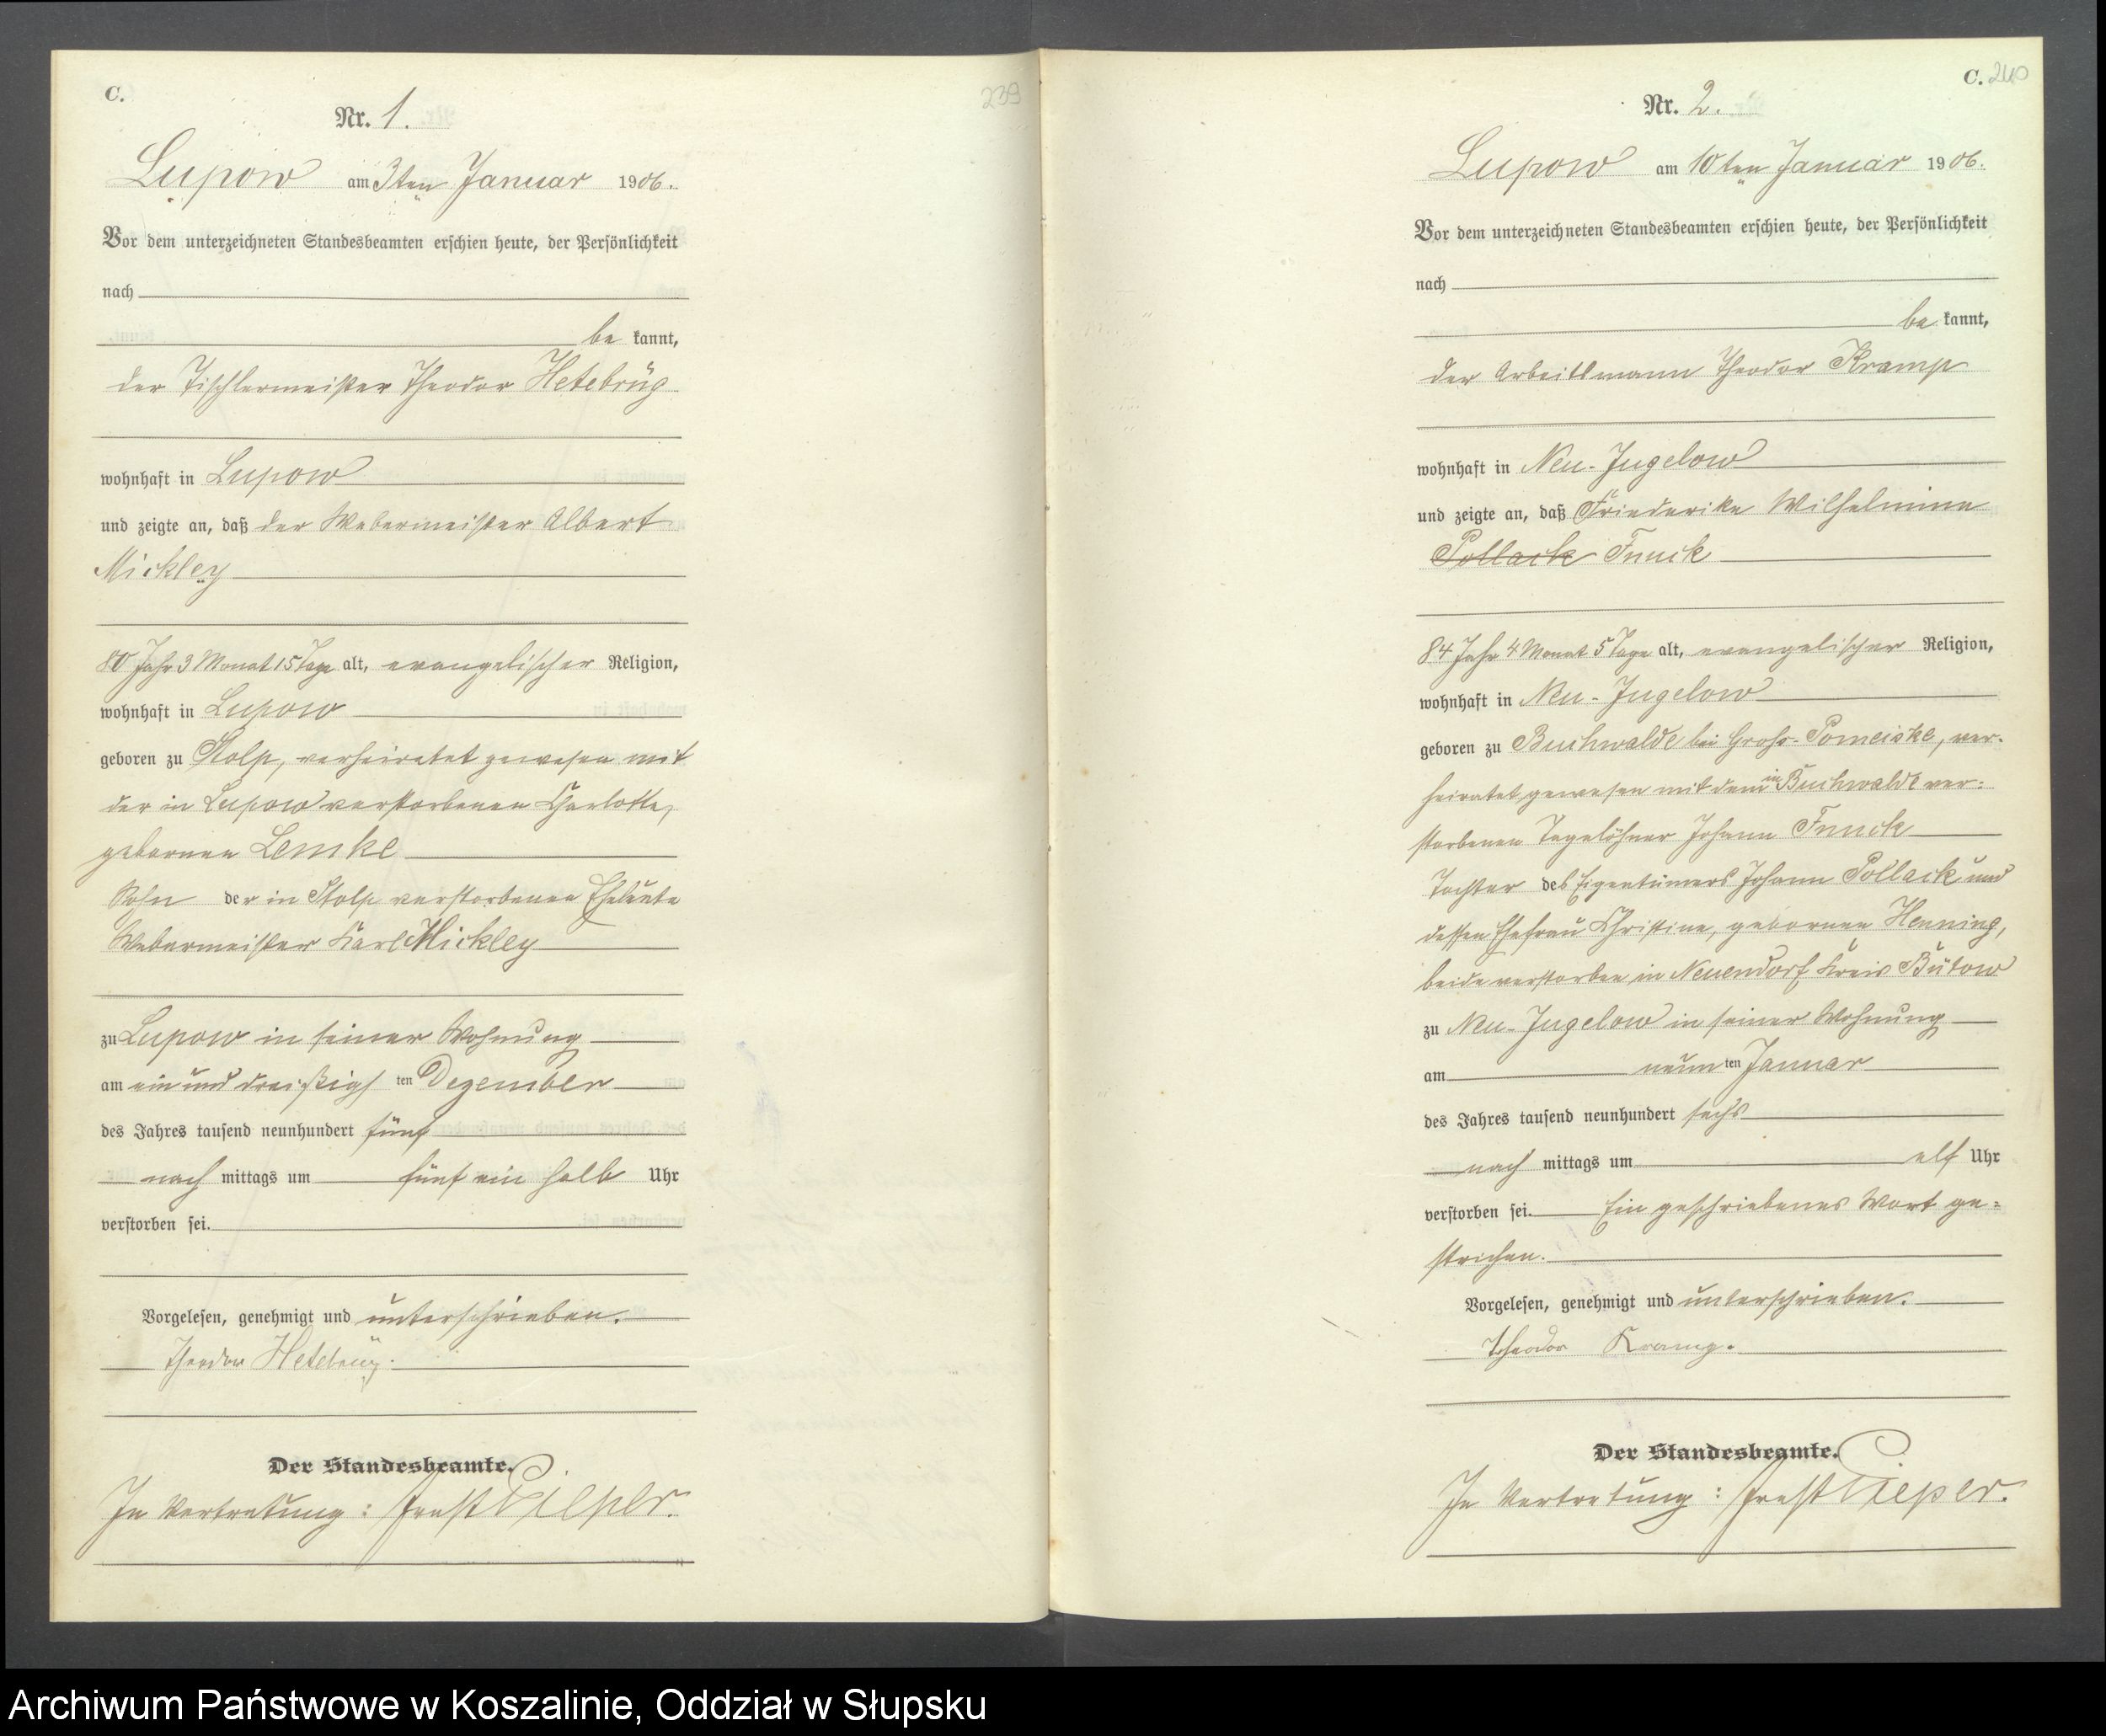 C.
239
Nr. 1.
Lupow am 3ten Januar 1906.
Vor dem unterzeichneten Standesbeamten erschien heute, der Persönlichkeit
nach
be kannt,
der Tischlermeister Theodor Hetebrüg
wohnhaft in Lupow
und zeigte an, daß der Webermeister Albert
Mickley
80 Jahr 3 Monat 15 Tage alt, evangelischer Religion,
wohnhaft in Lupow
geboren zu Stolp, verheiratet gewesen mit
der in Lupow verstorbenen Charlotte,
gebornen Lemke
Sohn der in Stolp verstorbenen Eheleute
Webermeister Karl Mickley
zu Lupow in seiner Wohnung
am ein und dreißigsten Dezember
des Jahres tausend neunhundert fünf
nach mittags um fünf ein halb Uhr
verstorben sei.
Vorgelesen, genehmigt und unterschrieben.
Theodor Hetebrüg.
Der Standesbeamte.
In Vertretung: Ernst Pieper.
C. 240
Nr. 2.
Lupow am 10ten Januar 1906.
Vor dem unterzeichneten Standesbeamten erschien heute, der Persönlichkeit
nach
be kannt,
der Arbeitsmann Theodor Kramp
wohnhaft in Neu-Jugelow
und zeigte an, daß Friederike Wilhelmine
Pollack Funck
84 Jahr 4 Monat 5 Tage alt, evangelischer Religion,
wohnhaft in Neu-Jugelow
geboren zu Buchwalde bei Groß-Pomeiske, ver-
heiratet gewesen mit dem in Buchwalde ver-
storbenen Tagelöhner Johann Funck
Tochter des Eigentümers Johann Pollack und
dessen Ehefrau Christine, gebornen Henning,
beide verstorben in Neuendorf Kreis Bütow
zu Neu-Jugelow in seiner Wohnung
am neunten Januar
des Jahres tausend neunhundert sechs
nach mittags um elf Uhr
verstorben sei. Ein geschriebenes Wort ge-
strichen.
Vorgelesen, genehmigt und unterschrieben.
Theodor Kramp.
Der Standesbeamte.
In Vertretung: Ernst Pieper.
Archiwum Państwowe w Koszalinie, Oddział w Słupsku